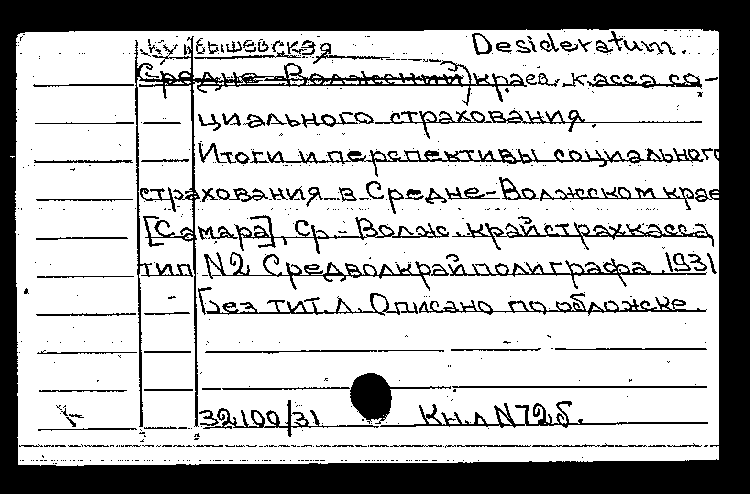 Куйбышевская Desideratum.
Средне-Волжский краев. касса со-
циального страхования.
Итоги и перспективы социального
страхования в Средне-Волжском крае
[Самара], Ср.-Волж. крайстрахкасса,
тип N2 Средволкрайполиграфа. 1931
Без тит. л. Описано по обложке.
32100/31 Кн.л N72б.